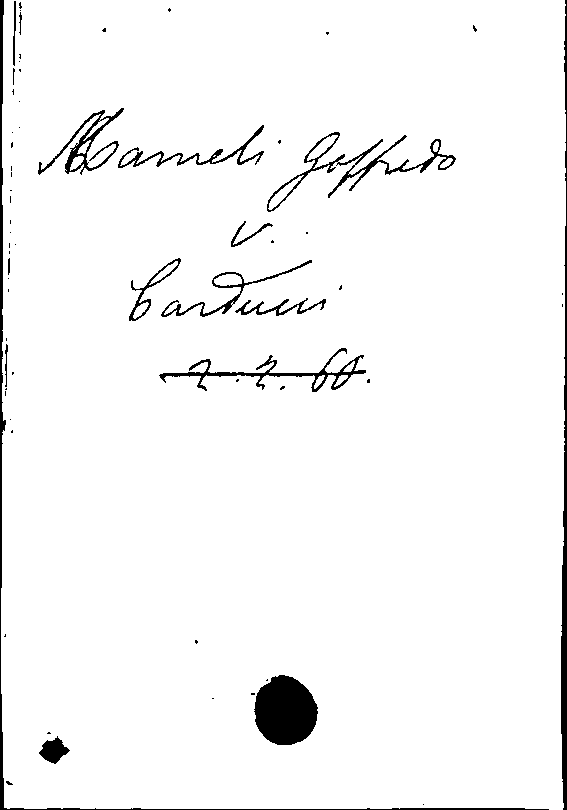 Mameli Goffredo
v.
Carducci
2.2.60.